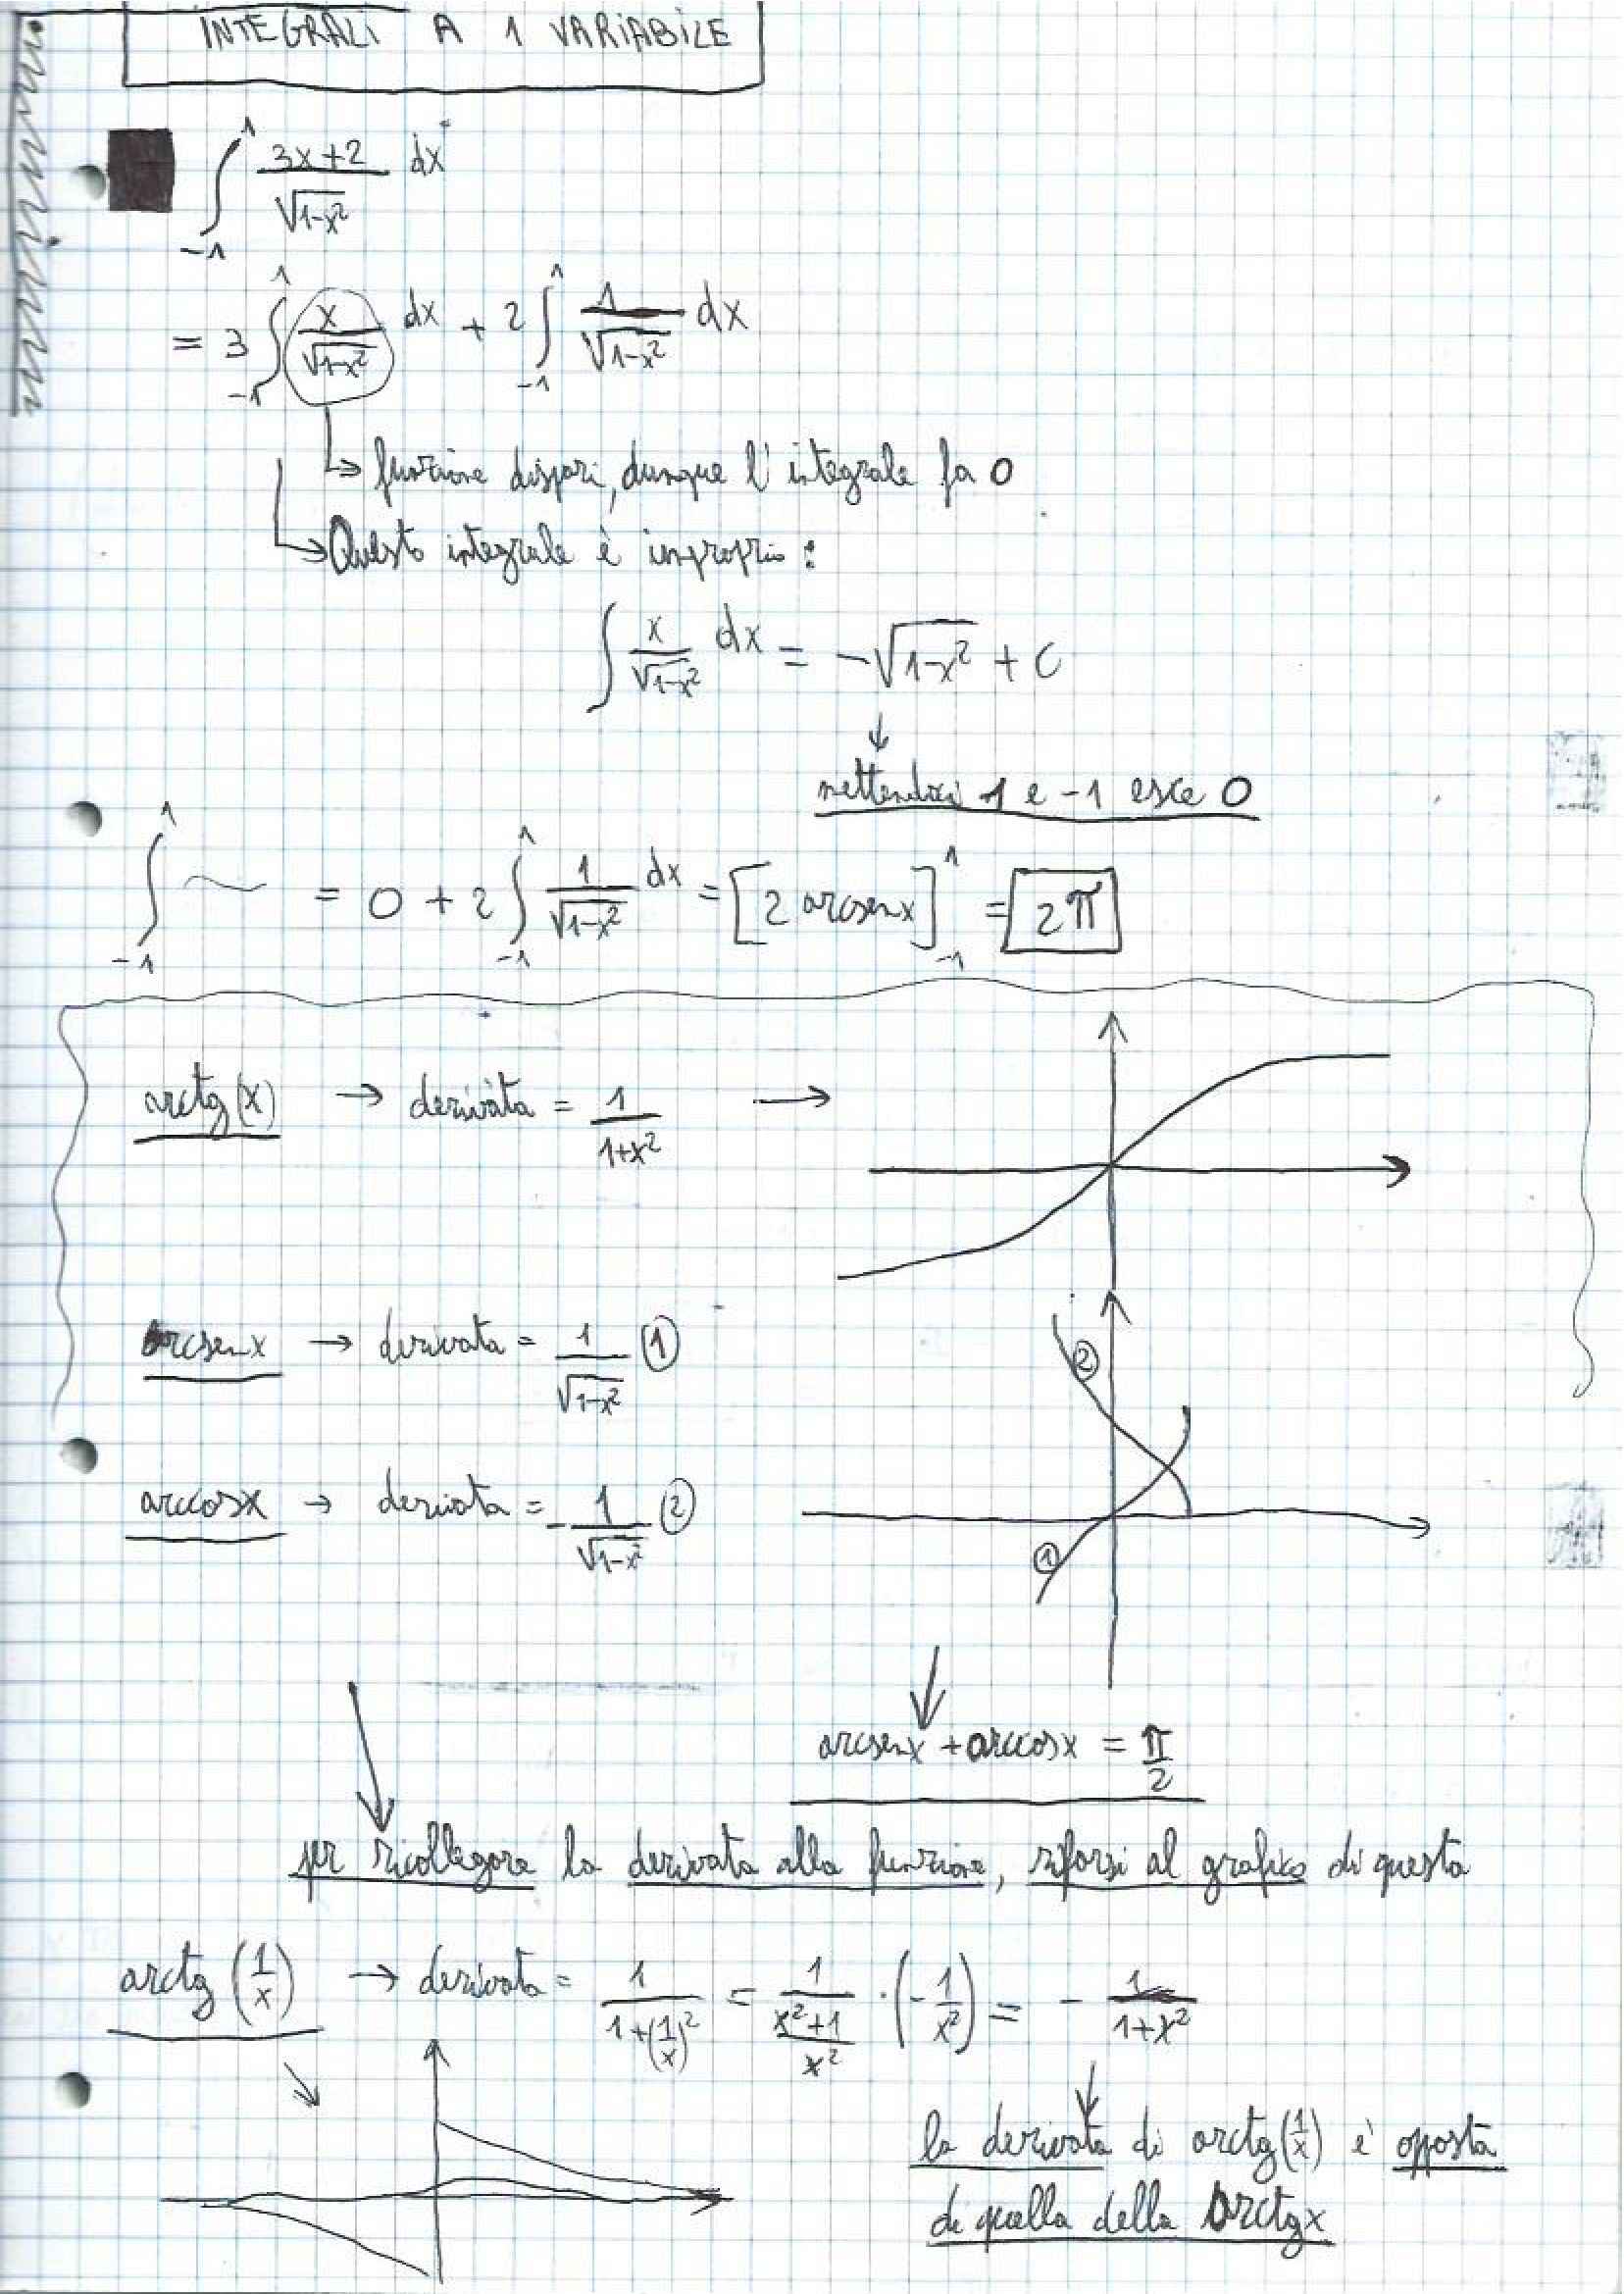 INTEGRALI A 1 VARIABILE
∫_{-1}^{1} (3x+2)/√(1-x²) dx
= 3 ∫_{-1}^{1} x/√(1-x²) dx + 2 ∫_{-1}^{1} 1/√(1-x²) dx
↳ funzione dispari, dunque l'integrale fa 0
↳ Questo integrale è improprio:
∫ x/√(1-x²) dx = -√(1-x²) + C
↓
mettendoci 1 e -1 esce 0
∫_{-1}^{1} ~ = 0 + 2 ∫_{-1}^{1} 1/√(1-x²) dx = [2 arcsenx]_{-1}^{1} = 2π
arctg(x) → derivata = 1/(1+x²) →
arcsenx → derivata = 1/√(1-x²) ①
②
arccosx → derivata = -1/√(1-x²) ②
①
arcsenx + arccosx = π/2
per ricollegare la derivata alla funzione, rifarsi al grafico di questa
arctg(1/x) → derivata = 1/(1+(1/x)²) = 1/((x²+1)/x²) · (-1/x²) = - 1/(1+x²)
la derivata di arctg(1/x) è opposta
di quella della arctgx